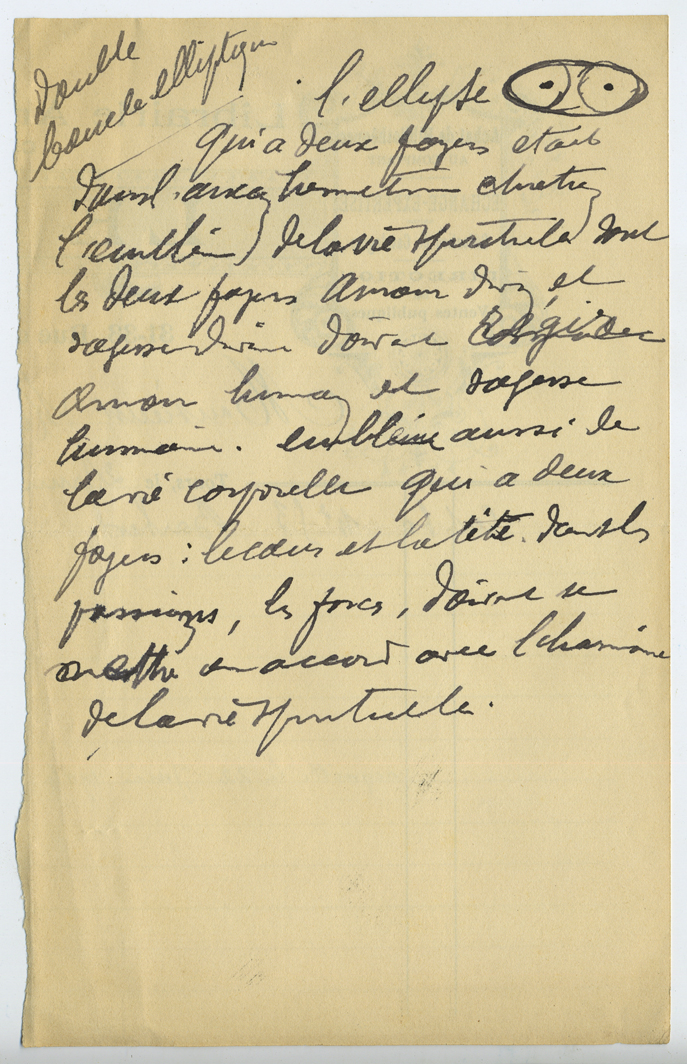 Double
boucle elliptique
l'ellipse
qui a deux foyers était
dans l'ancien hermétisme chrétien
l'emblème de la vie spirituelle dont
les deux foyers Amour divin et
sagesse divine doivent
Amour humain et sagesse
humaine. emblème aussi de
la vie corporelle qui a deux
foyers : le cœur et la tête. dont les
passions, les forces, doivent se
mettre en accord avec l'harmonie
de la vie spirituelle.